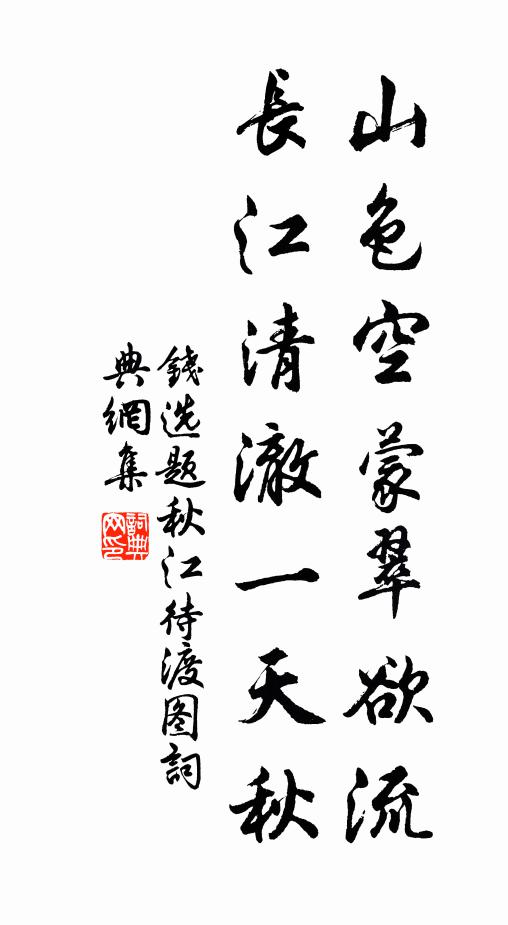 山色空蒙翠欲流
長江清澈一天秋
錢选题秋江待渡图詞
典網集
詞典
网印